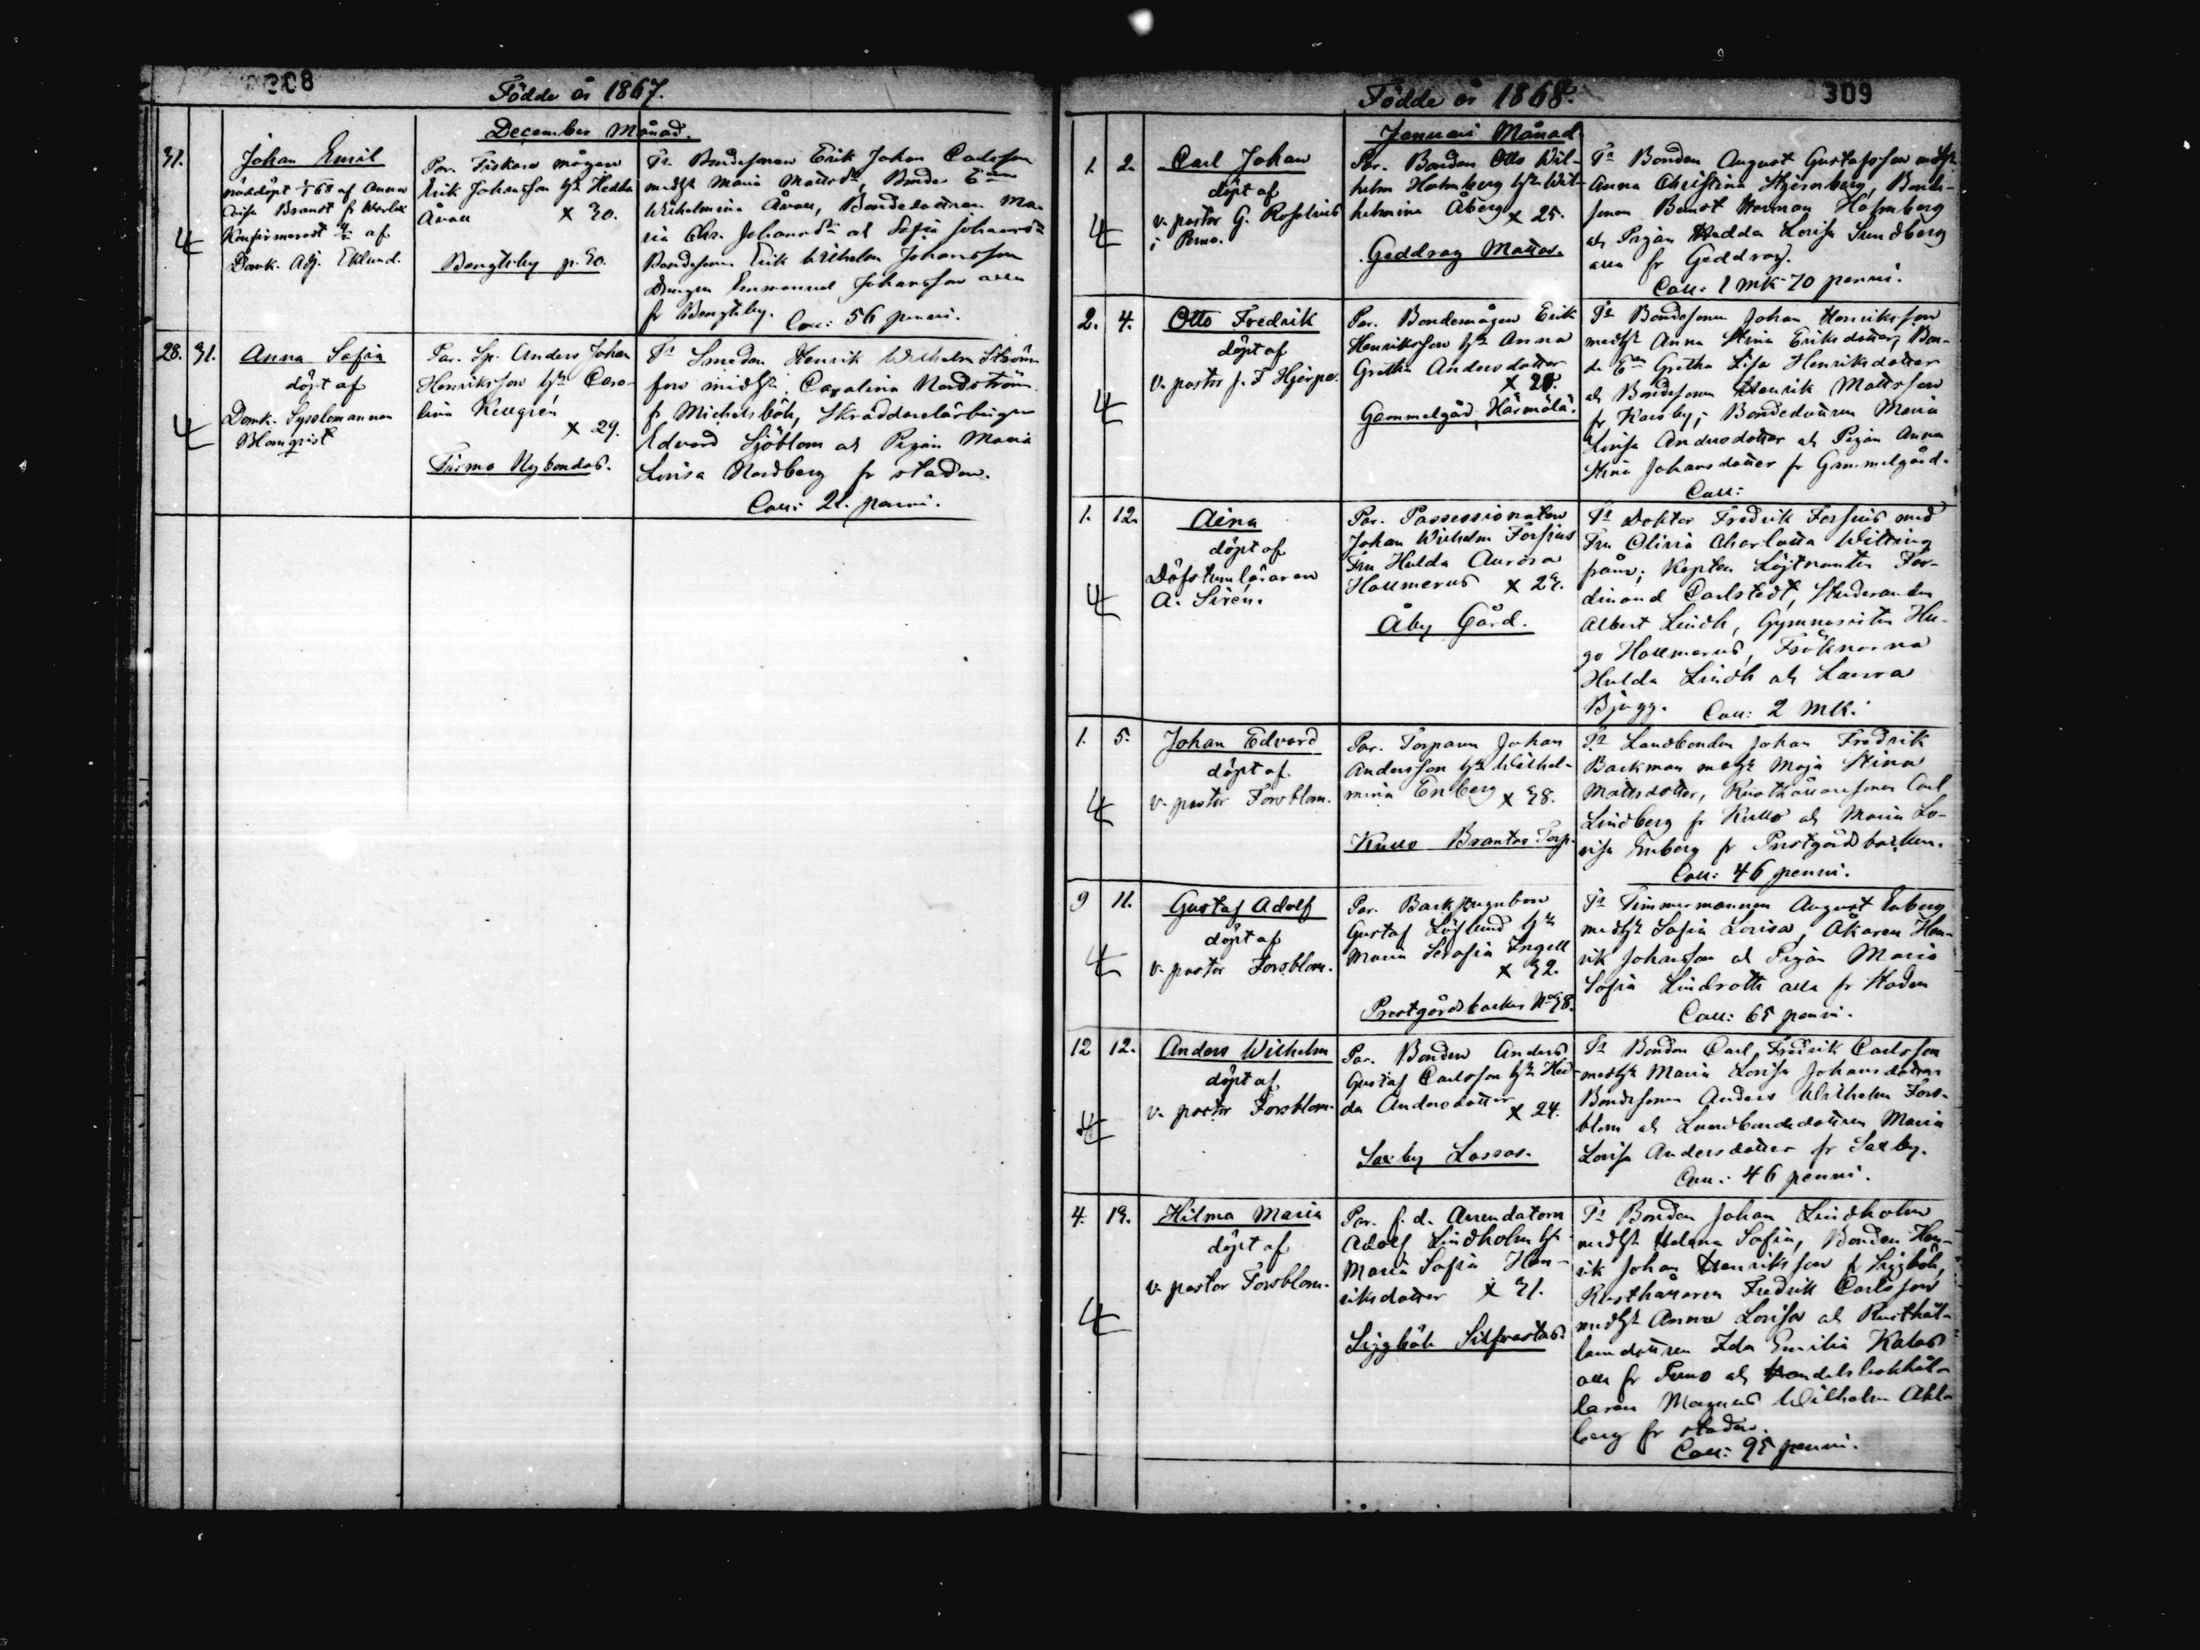 308
Födde år 1867.
December Månad.
31.
Johan Emil
nöddöpt af Anna
Brandt fr
Konfirmeradt af
Domk. Adj. Eklund.
Par. Fiskare mågen
Erik Johansson hu Hedda
Åvall x 30.
Bengtsby p. 30.
Fr Bondesonen Erik Johan Carlsson
medh Maria Mattsdr, Bonde Ean
Wilhelmina Åvall, Bondedottren Ma-
ria Chr. Johansdr och Sofia Johansdr
Bondesonen Erik Wilhelm Johansson
Drängen Emmanuel Johansson alla
fr Bengtsby. Coll: 56 penni.
28. 31.
Anna Sofia
döpt af
Domk. Sysslomannen
Blomqvist
Par. Sp. Anders Johan
Henriksson hu Caro-
lina Kellgrén
x 29.
Tirmo Nybondas.
Fr Smeden Henrik Wilhelm Ström-
fors medh Carolina Nordström
fr Michelsböle, Skräddarelärlingen
Edvard Sjöblom och Pigan Maria
Lovisa Nordberg fr staden.
Coll: 21. penni.
309
Födde år 1868.
Januari Månad.
1. 2.
Carl Johan
döpt af
v. pastor G. Rosenius
i Perno.
Par. Bonden Otto Wil-
helm Holmberg hu Wil-
helmina Åberg x 25.
Geddrag Mattas.
Fr Bonden August Gustafsson medh
Anna Christina Stjernberg, Bonde-
sonen Herman Holmberg
och Pigan Hedda Lovisa Sundberg
alla fr Geddrag.
Coll: 1 mk 70 penni.
2. 4.
Otto Fredrik
döpt af
v. pastor J. F. Hjerpe.
Par. Bondemågen Erik
Henriksson hu Anna
Greta Andersdotter
x 28.
Gammelgård, Härmälä.
Fr Bondesonen Johan Henriksson
medh Anna Stina Eriksdotter, Bon-
de Ean Gretha Lisa Henriksdotter
och Bondesonen Henrik Mattsson
fr Karsby; Bondedottren Maria
Lovisa Andersdotter och Pigan Anna
Stina Johansdotter fr Gammelgård.
Coll:
1. 12.
Aina
döpt af
Döfstumläraren
A. Sirén.
Par. Possessionaten
Johan Wilhelm Forsius
Fru Hulda Aurora
Hollmerus x 23.
Åby Gård.
Fr Doktor Fredrik Forsius med
Fru Olivia Charlotta Wittring
Kapten Löjtnanten Fer-
dinand Carlstedt, Studeranden
Albert Lindh, Gymnasisten Hu-
go Hollmerus, Fröknarna
Hulda Lindh och Laura
Bjugg. Coll: 2 Mk.
1. 5.
Johan Edvard
döpt af
v. pastor Forsblom.
Par. Torparen Johan
Andersson hu Wilhel-
mina Enberg x 38.
Kullo Brantas Torp.
Fr Landbonden Johan Fredrik
Backman medh Maja Stina
Mattsdotter, Rusthållaresonen Carl
Lindberg fr Kullo och Maria Lo-
visa Enberg fr Prestgårdsbacken.
Coll: 46 penni.
9 11.
Gustaf Adolf
döpt af
v. pastor Forsblom.
Par. Backstugubon
Gustaf Löflund hu
Maria Serafia Ingell
x 32.
Prestgårdsbacken No 38.
Fr Timmermannen August Enberg
medh Sofia Lovisa, Åkaren Hen-
rik Johansson och Pigan Maria
Sofia Lindroth alla fr Staden
Coll: 65 penni.
12 12.
Anders Wilhelm
döpt af
v. pastor Forsblom.
Par. Bonden Anders
Gustaf Carlsson hu Hed-
da Andersdotter x 24.
Saxby Lassas.
Fr Bonden Carl Fredrik Carlsson
medh Maria Lovisa Johansdotter
Bondesonen Anders Wilhelm Fors-
blom och Landbondedottren Maria
Lovisa Andersdotter fr Saxby.
Coll: 46 penni.
4. 13.
Hilma Maria
döpt af
v. pastor Forsblom.
Par. f. d. Arrendatorn
Adolf Lindholm hu
Maria Sofia Hen-
riksdotter x 31.
Siggböle Silfvastas.
Fr Bonden Johan Lindholm
medh Helena Sofia, Bonden Hen-
rik Johan Henriksson fr Siggböle,
Rusthållaren Fredrik Carlsson
medh Anna Lovisa och Rusthål-
laredottren Ida Emilia Kalas
alla fr Perno och Handelsbokhål-
laren Magnus Wilhelm Ahl-
berg fr staden.
Coll: 95 penni.